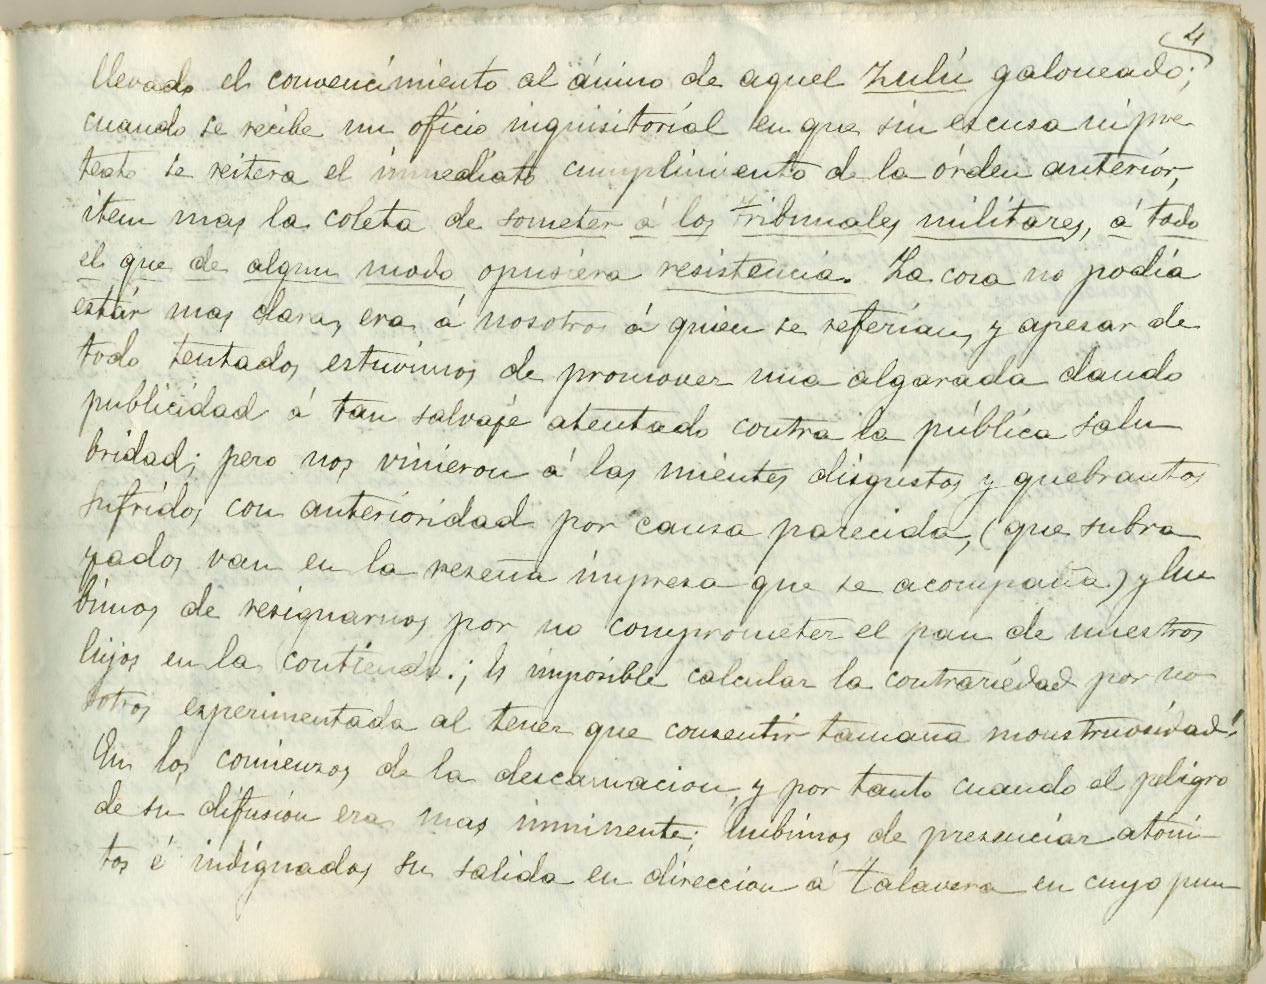 4
llevado el convencimiento al ánimo de aquel Zulú galoneado;
cuando se recibe un oficio inquisitorial en que sin escusa ni pre
testo se reitera el inmediato cumplimiento de la órden anterior,
item mas la coleta de someter á los tribunales militares, á todo
el que de algun modo opusiera resistencia. La cosa no podia
estár mas clara, era á nosotros á quien se referian, y apesar de
todo tentados estuvimos de promover una algarada dando
publicidad á tan salvaje atentado contra la pública salu
bridad; pero nos vinieron á las mientes disgustos y quebrantos
sufridos con anterioridad por causa parecida, (que subra
yados van en la reseña impresa que se acompaña) y hu
bimos de resignarnos por no comprometer el pan de nuestros
hijos en la contienda.; Es imposible calcular la contrariedad por no
sotros experimentada al tener que consentir tamaña monstruosidad!
En los comienzos de la descarnacion, y por tanto cuando el peligro
de su difusion era mas inminente; hubimos de presenciar atóni
tos é indignados su salida en direccion á Talavera en cuyo pun